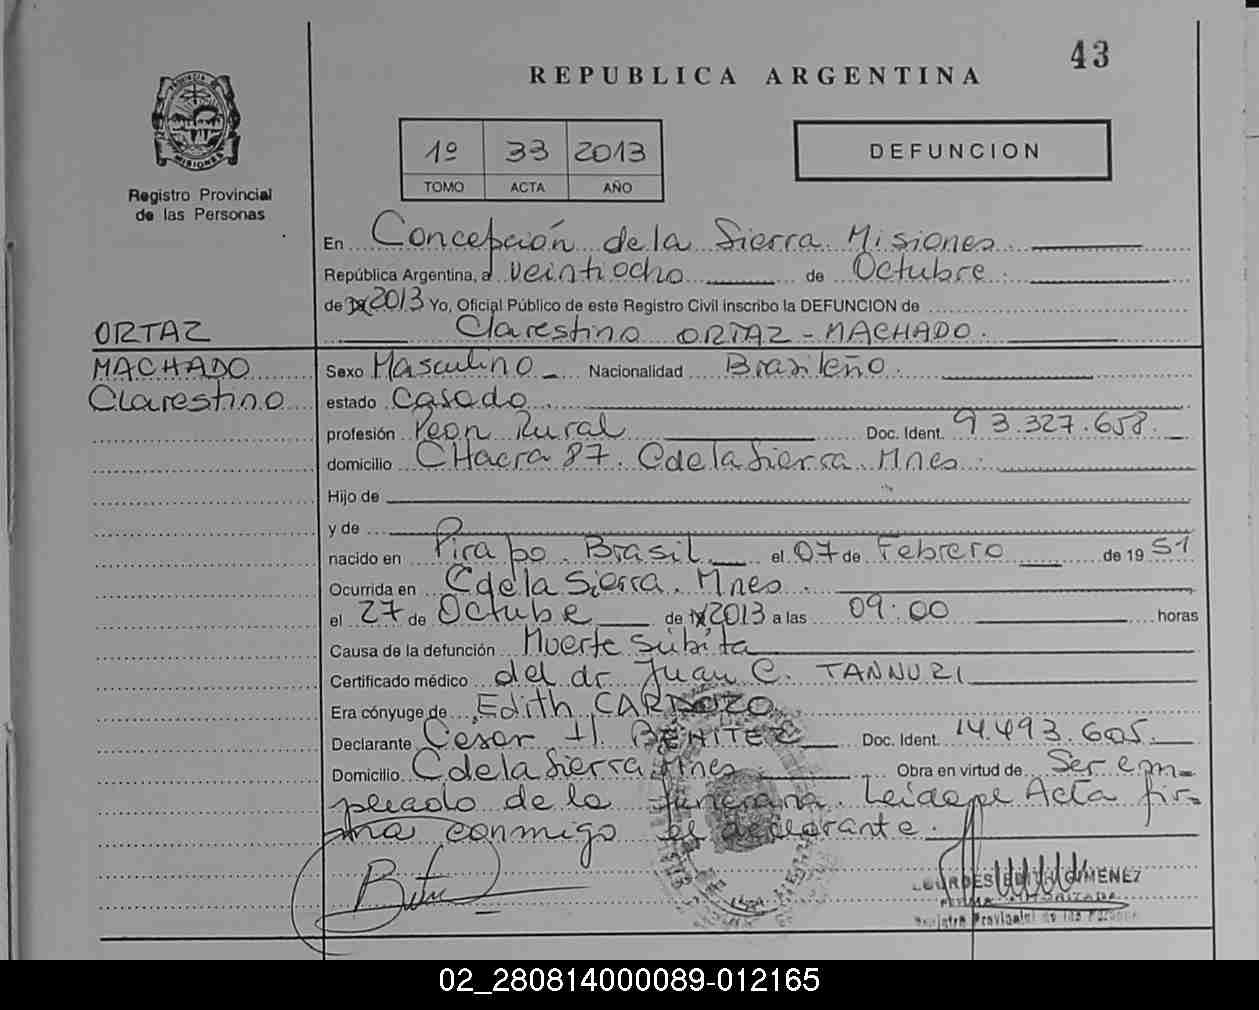 43
REPUBLICA ARGENTINA
1º 33 2013
TOMO ACTA AÑO
DEFUNCION
MISIONES
Registro Provincial
de las Personas
En Concepción de la Sierra Misiones
República Argentina, a veintiocho de Octubre
de 19 2013 Yo, Oficial Público de este Registro Civil inscribo la DEFUNCION de
Clarestino ORTAZ - MACHADO.
ORTAZ
MACHADO
Clarestino
Sexo Masculino Nacionalidad Brasileño.
estado Casado.
profesión Peon Rural Doc. Ident. 93.327.658.
domicilio CHacra 87. C de la Sierra. Mnes.
Hijo de
y de
nacido en Pirapo. Brasil el 07 de Febrero de 19 51
Ocurrida en C de la Sierra. Mnes.
el 27 de Octubre de 19 2013 a las 09:00 horas
Causa de la defunción Muerte súbita
Certificado médico del dr Juan C. TANNURI
Era cónyuge de Edith CARDOZO
Declarante Cesar H. BENITEZ Doc. Ident. 14.493.605.
Domicilio C de la Sierra Mnes Obra en virtud de Ser em-
pleado de la funeraria. Leida el Acta fir-
ma conmigo el declarante.
LOURDES GIMENEZ
AUTORIZADA
Registro Provincial de las Personas
02_280814000089-012165